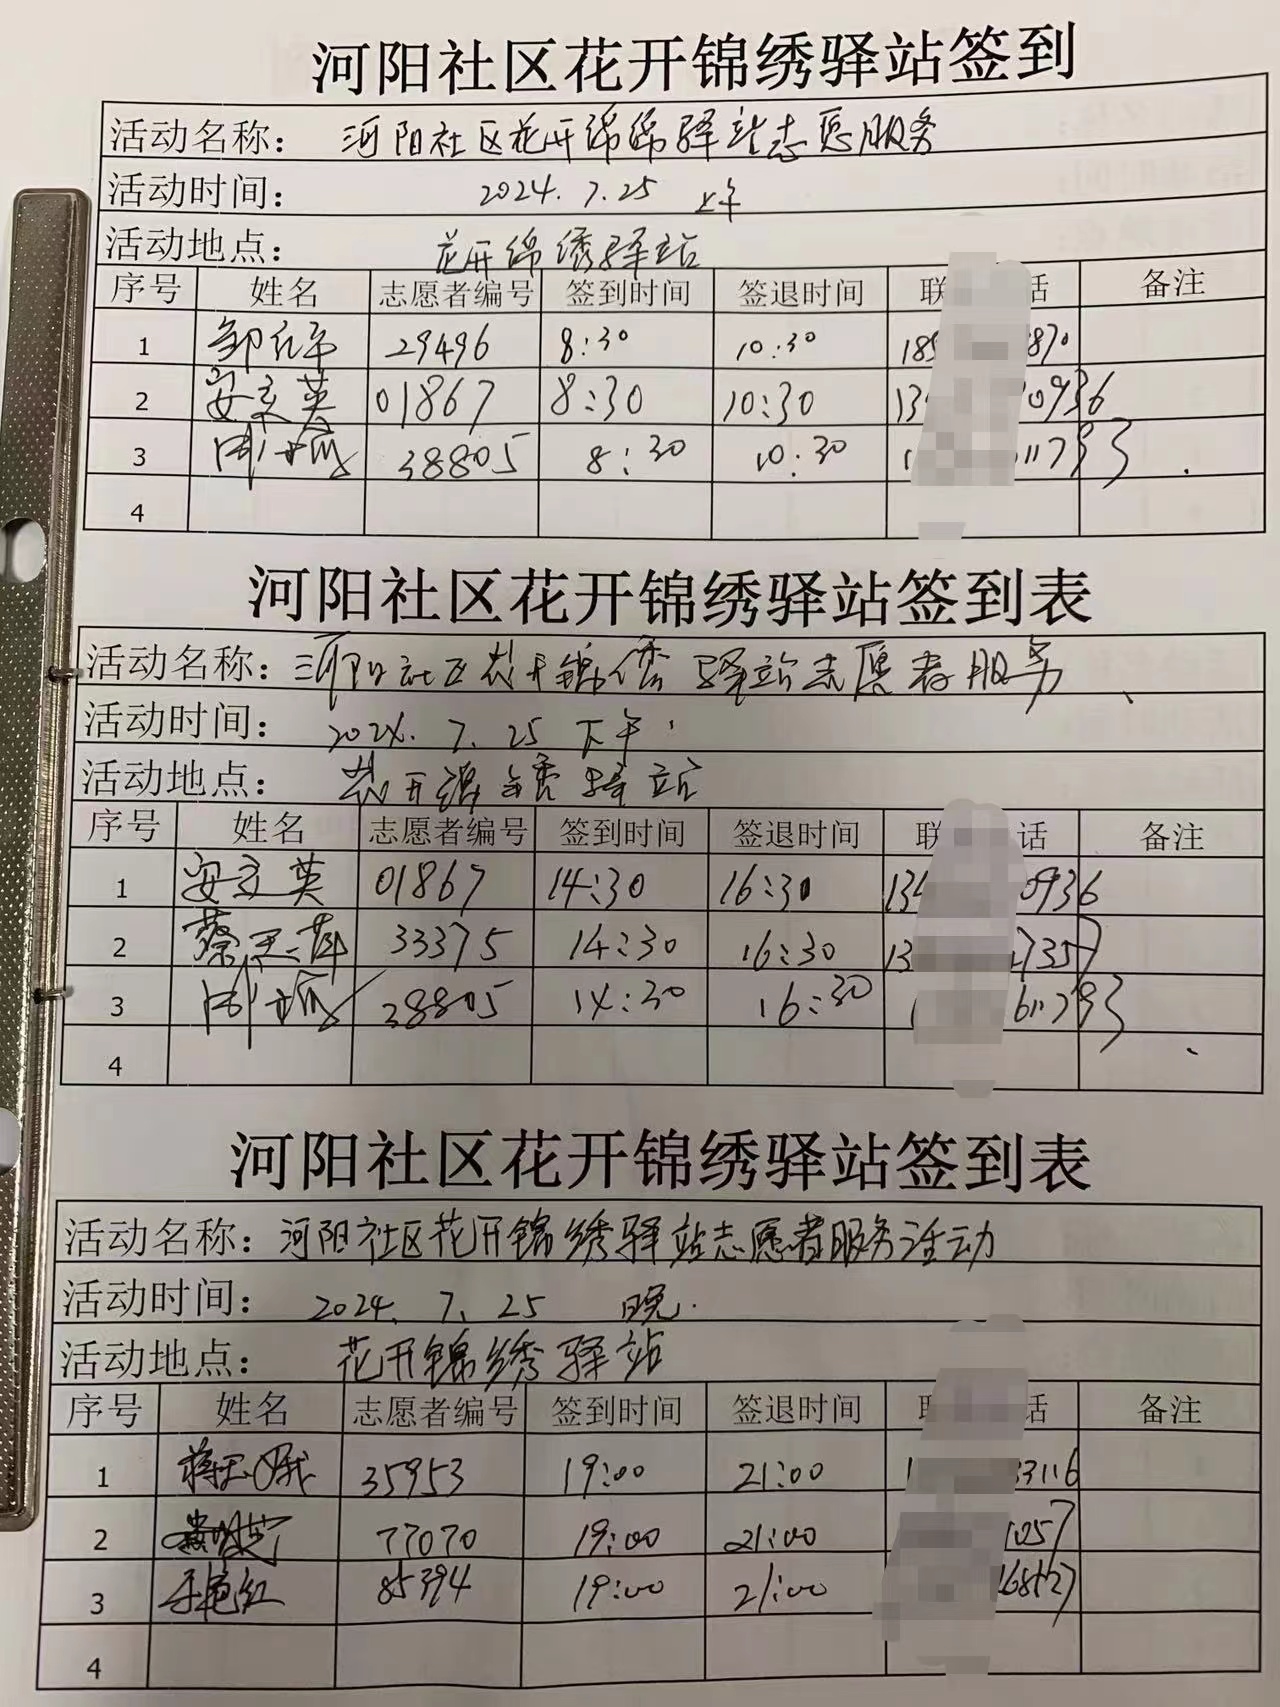 河阳社区花开锦绣驿站签到
活动名称： 河阳社区花开绵绵驿站志愿服务
活动时间： 2024.7.25 上午
活动地点： 花开绵绣驿站
序号 姓名 志愿者编号 签到时间 签退时间 联 话 备注
1 29496 8:30 10:30 18 870
2 安文英 01867 8:30 10:30 13 0936
3 38805 8:30 10:30 1 11793
4
河阳社区花开锦绣驿站签到表
活动名称： 河阳社区花开锦 驿站志愿者服务
活动时间： 2024.7.25 下午
活动地点： 花开 驿站
序号 姓名 志愿者编号 签到时间 签退时间 联 话 备注
1 安文英 01867 14:30 16:30 134 0936
2 蔡玉萍 33375 14:30 16:30 13 7357
3 38805 14:30 16:30 1 611793
4
河阳社区花开锦绣驿站签到表
活动名称： 河阳社区花开锦绣驿站志愿者服务活动
活动时间： 2024.7.25 晚.
活动地点： 花开锦绣驿站
序号 姓名 志愿者编号 签到时间 签退时间 联 话 备注
1 35953 19:00 21:00 1 33116
2 77070 19:00 21:00 1057
3 85394 19:00 21:00
4